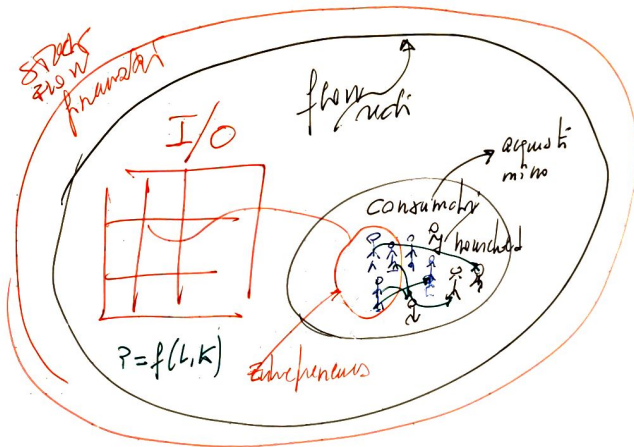 Stock
Flow
finanziari
flow
I/O
acquisti
consumatori
household
P=f(L,K)
Entrepreneurs